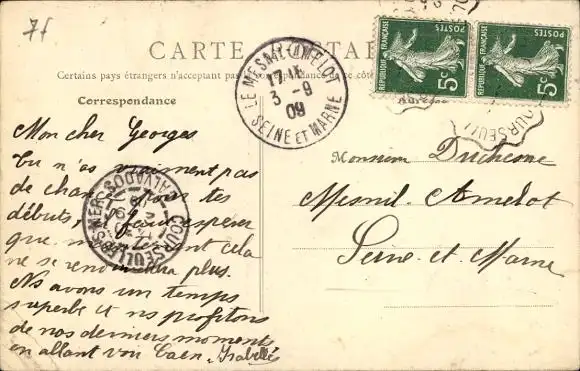 7f
CARTE POSTALE
Certains pays étrangers n'acceptant pas
de ce côté
Correspondance
Adresse
LE MESNIL-AMELOT
3 -9
09
SEINE ET MARNE
RÉPUBLIQUE FRANÇAISE
POSTES
5c
RÉPUBLIQUE FRANÇAISE
POSTES
5c
COURSEULLES-S-MER
CALVADOS
Mon cher Georges
Tu n'as vraiment pas
de chance pour tes
débuts, il faut espérer
que cela
ne se renouvellera plus.
Ns avons un temps
superbe et ns profitons
de nos derniers moments
en allant voir Caen. Isabelle
Monsieur Duchesne
Mesnil-Amelot
Seine-et-Marne